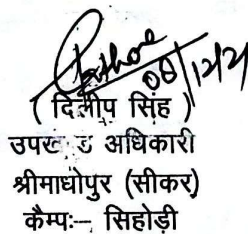 08/12/21
( दिलीप सिंह )
उपखण्ड अधिकारी
श्रीमाधोपुर (सीकर)
कैम्पः– सिहोड़ी